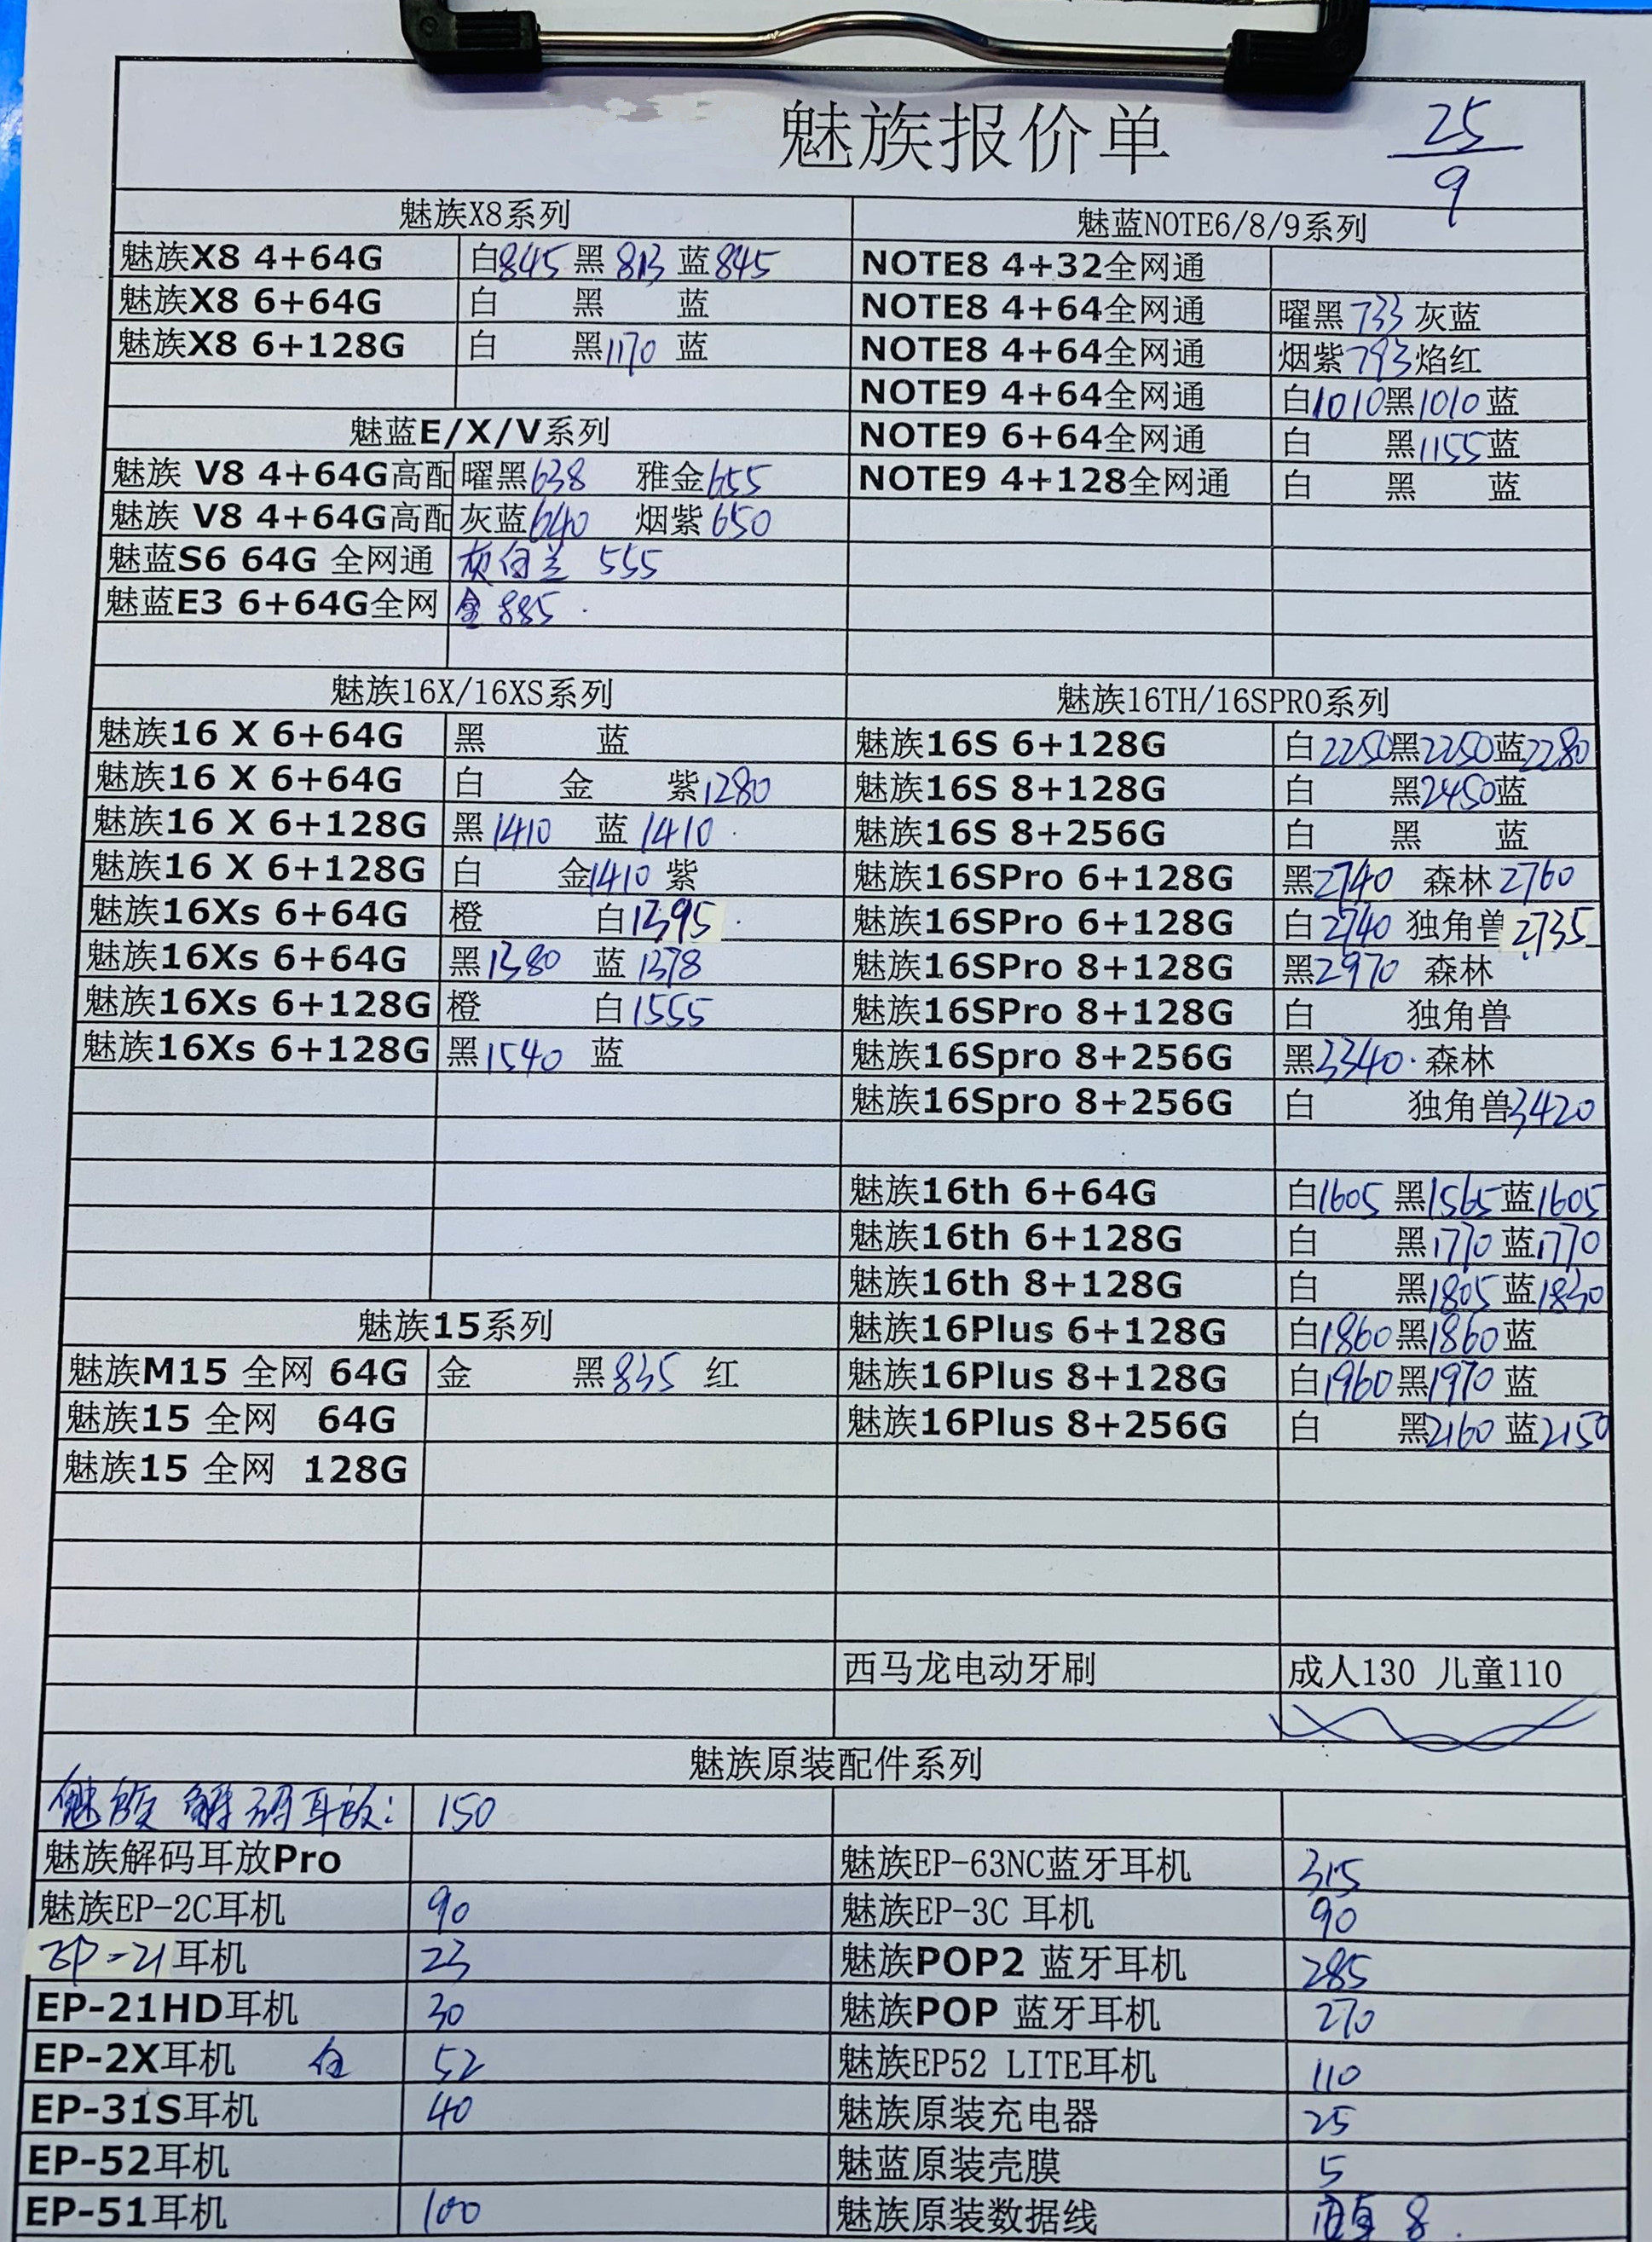 魅族报价单 25/9
魅族X8系列 魅蓝NOTE6/8/9系列
魅族X8 4+64G 白845 黑813 蓝845 NOTE8 4+32全网通
魅族X8 6+64G 白 黑 蓝 NOTE8 4+64全网通 曜黑733 灰蓝
魅族X8 6+128G 白 黑1170 蓝 NOTE8 4+64全网通 烟紫793 焰红
NOTE9 4+64全网通 白1010 黑1010 蓝
魅蓝E/X/V系列 NOTE9 6+64全网通 白 黑1155 蓝
魅族 V8 4+64G高配 曜黑638 雅金655 NOTE9 4+128全网通 白 黑 蓝
魅族 V8 4+64G高配 灰蓝640 烟紫650
魅蓝S6 64G 全网通 555
魅蓝E3 6+64G全网 金885
魅族16X/16XS系列 魅族16TH/16SPRO系列
魅族16 X 6+64G 黑 蓝 魅族16S 6+128G 白2250 黑2250 蓝2280
魅族16 X 6+64G 白 金 紫1280 魅族16S 8+128G 白 黑2450 蓝
魅族16 X 6+128G 黑1410 蓝1410 魅族16S 8+256G 白 黑 蓝
魅族16 X 6+128G 白 金1410 紫 魅族16SPro 6+128G 黑2740 森林2760
魅族16Xs 6+64G 橙 白1395 魅族16SPro 6+128G 白2740 独角兽2735
魅族16Xs 6+64G 黑1380 蓝1378 魅族16SPro 8+128G 黑2970 森林
魅族16Xs 6+128G 橙 白1555 魅族16SPro 8+128G 白 独角兽
魅族16Xs 6+128G 黑1540 蓝 魅族16Spro 8+256G 黑3340 森林
魅族16Spro 8+256G 白 独角兽3420
魅族16th 6+64G 白1605 黑1565 蓝1605
魅族16th 6+128G 白 黑1770 蓝1770
魅族16th 8+128G 白 黑1805 蓝1830
魅族15系列 魅族16Plus 6+128G 白1860 黑1860 蓝
魅族M15 全网 64G 金 黑835 红 魅族16Plus 8+128G 白1960 黑1970 蓝
魅族15 全网 64G 魅族16Plus 8+256G 白 黑2160 蓝2150
魅族15 全网 128G
西马龙电动牙刷 成人130 儿童110
魅族原装配件系列
魅族解码耳放: 150
魅族解码耳放Pro 魅族EP-63NC蓝牙耳机 315
魅族EP-2C耳机 90 魅族EP-3C 耳机 90
EP-21耳机 23 魅族POP2 蓝牙耳机 285
EP-21HD耳机 30 魅族POP 蓝牙耳机 270
EP-2X耳机 白 52 魅族EP52 LITE耳机 110
EP-31S耳机 40 魅族原装充电器 25
EP-52耳机 魅蓝原装壳膜 5
EP-51耳机 100 魅族原装数据线 8